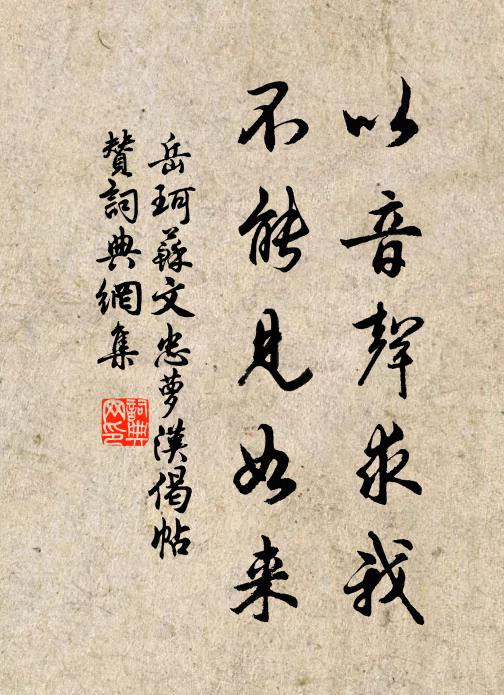 以音聲求我
不能見如来
岳珂蘇文忠夢漢偈帖
贊詞典網集
詞典
网印